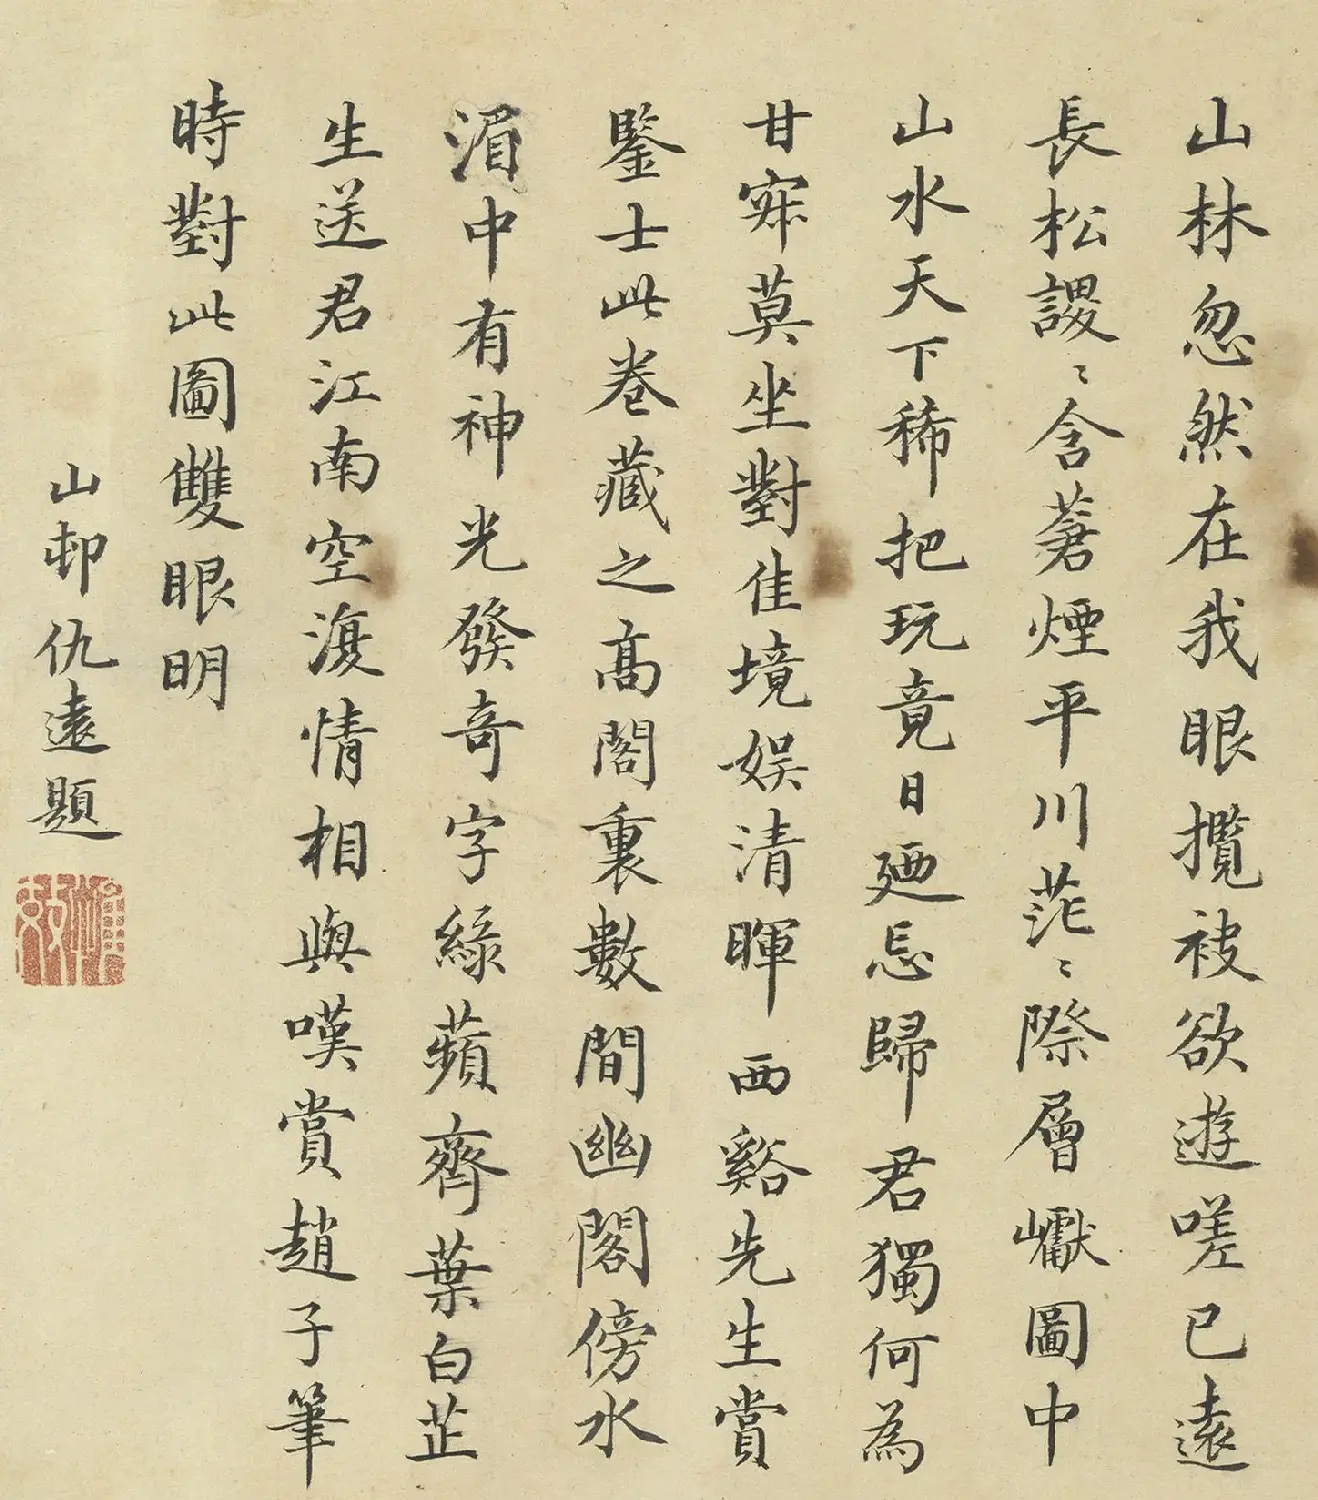 山林忽然在我眼攬被欲遊嗟已遠
長松謖〻含蒼煙平川茫〻際層巘圖中
山水天下稀把玩竟日廼忘歸君獨何為
甘寂莫坐對佳境娱清暉西谿先生賞
鑒士此卷藏之高閣裏數間幽閣傍水
湄中有神光發奇字綠蘋齊葉白芷
生送君江南空復情相與嘆賞趙子筆
時對此圖雙眼明
山邨仇遠題